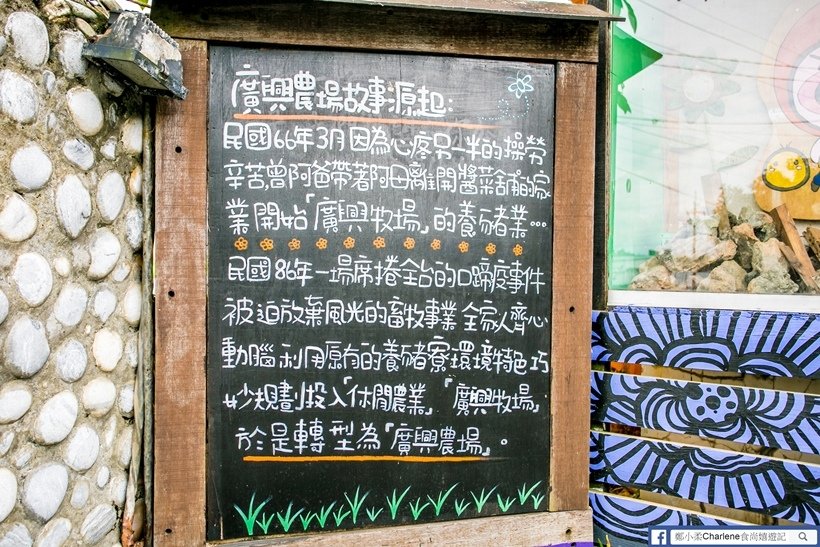 廣興農場故事源起:
民國66年3月因為心疼另一半的操勞
辛苦曾阿爸帶著阿田離開醬菜舖的家
業開始「廣興牧場」的養豬業…
民國86年一場席捲全台的口蹄疫事件
被迫放棄風光的畜牧事業全家人齊心
動腦利用原有的養豬寮環境特色巧
妙規劃投入「休閒農業」「廣興牧場」
於是轉型為「廣興農場」。
鄭小柔Charlene食尚嬉遊記